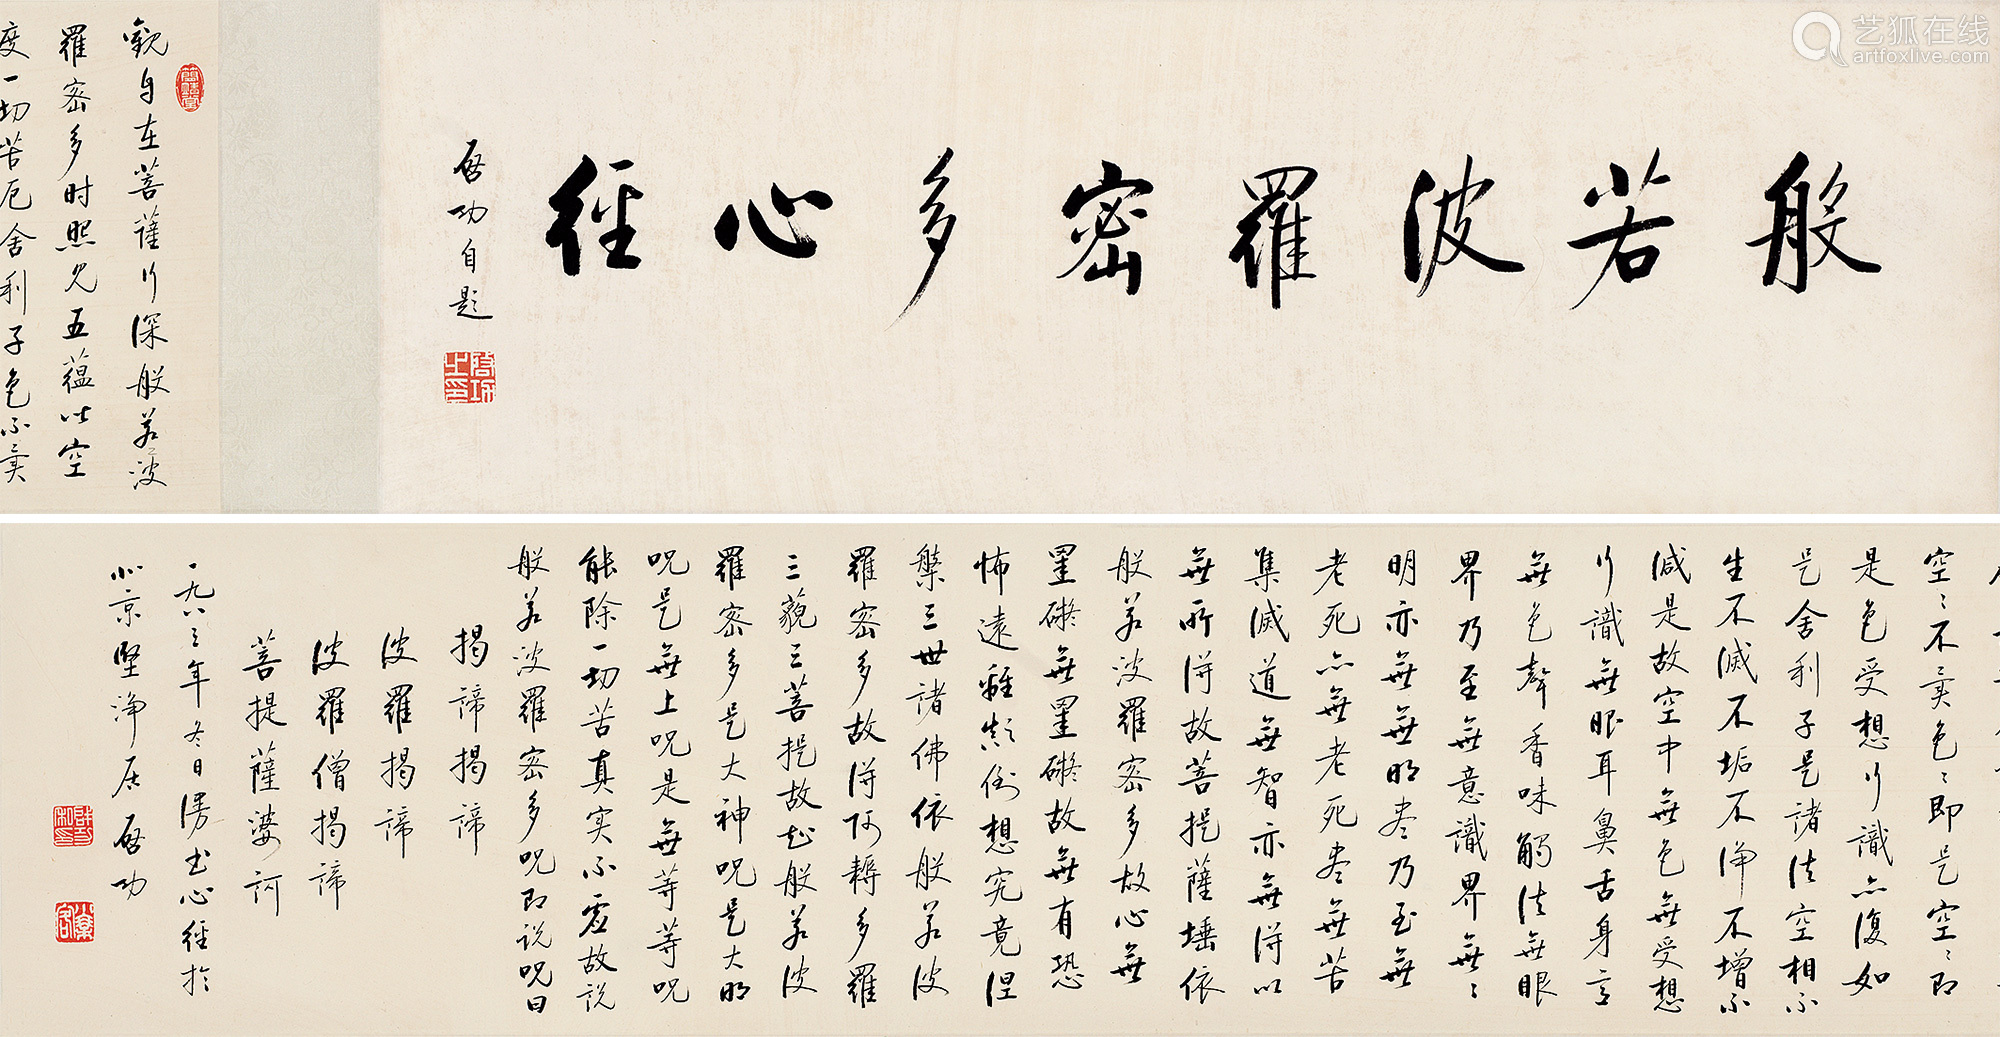 艺狐在线
artfoxlive.com
般若波羅密多心經
啓功自題
啓功之印
觀自在菩薩行深般若波
羅密多时照見五蘊皆空
度一切苦厄舍利子色不異
空〻不異色〻即是空〻即
是色受想行識亦復如
是舍利子是諸法空相不
生不滅不垢不淨不增不
減是故空中無色無受想
行識無眼耳鼻舌身意
無色聲香味觸法無眼
界乃至無意識界無〻
明亦無無明盡乃至無
老死亦無老死盡無苦
集滅道無智亦無得以
無所得故菩提薩埵依
般若波羅密多故心無
罣礙無罣礙故無有恐
怖遠離顛倒想究竟涅
槃三世諸佛依般若波
羅密多故得阿耨多羅
三藐三菩提故知般若波
羅密多是大神呪是大明
呪是無上呪是無等等呪
能除一切苦真实不虛故說
般若波羅密多呪即說呪曰
揭諦揭諦
波羅揭諦
波羅僧揭諦
菩提薩婆訶
一九八三年冬日漫书心經於
北京堅淨居 啓功